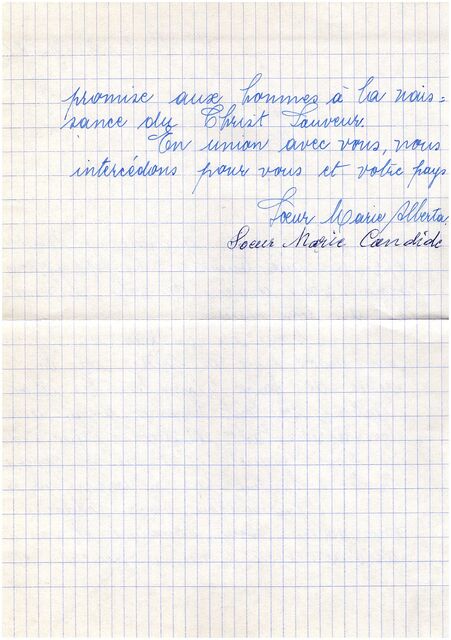 promise aux hommes à la nais=
sance du Christ Sauveur.
En union avec vous, nous
intercédons pour vous et votre pays
Soeur Marie Alberta.
Soeur Marie Candide